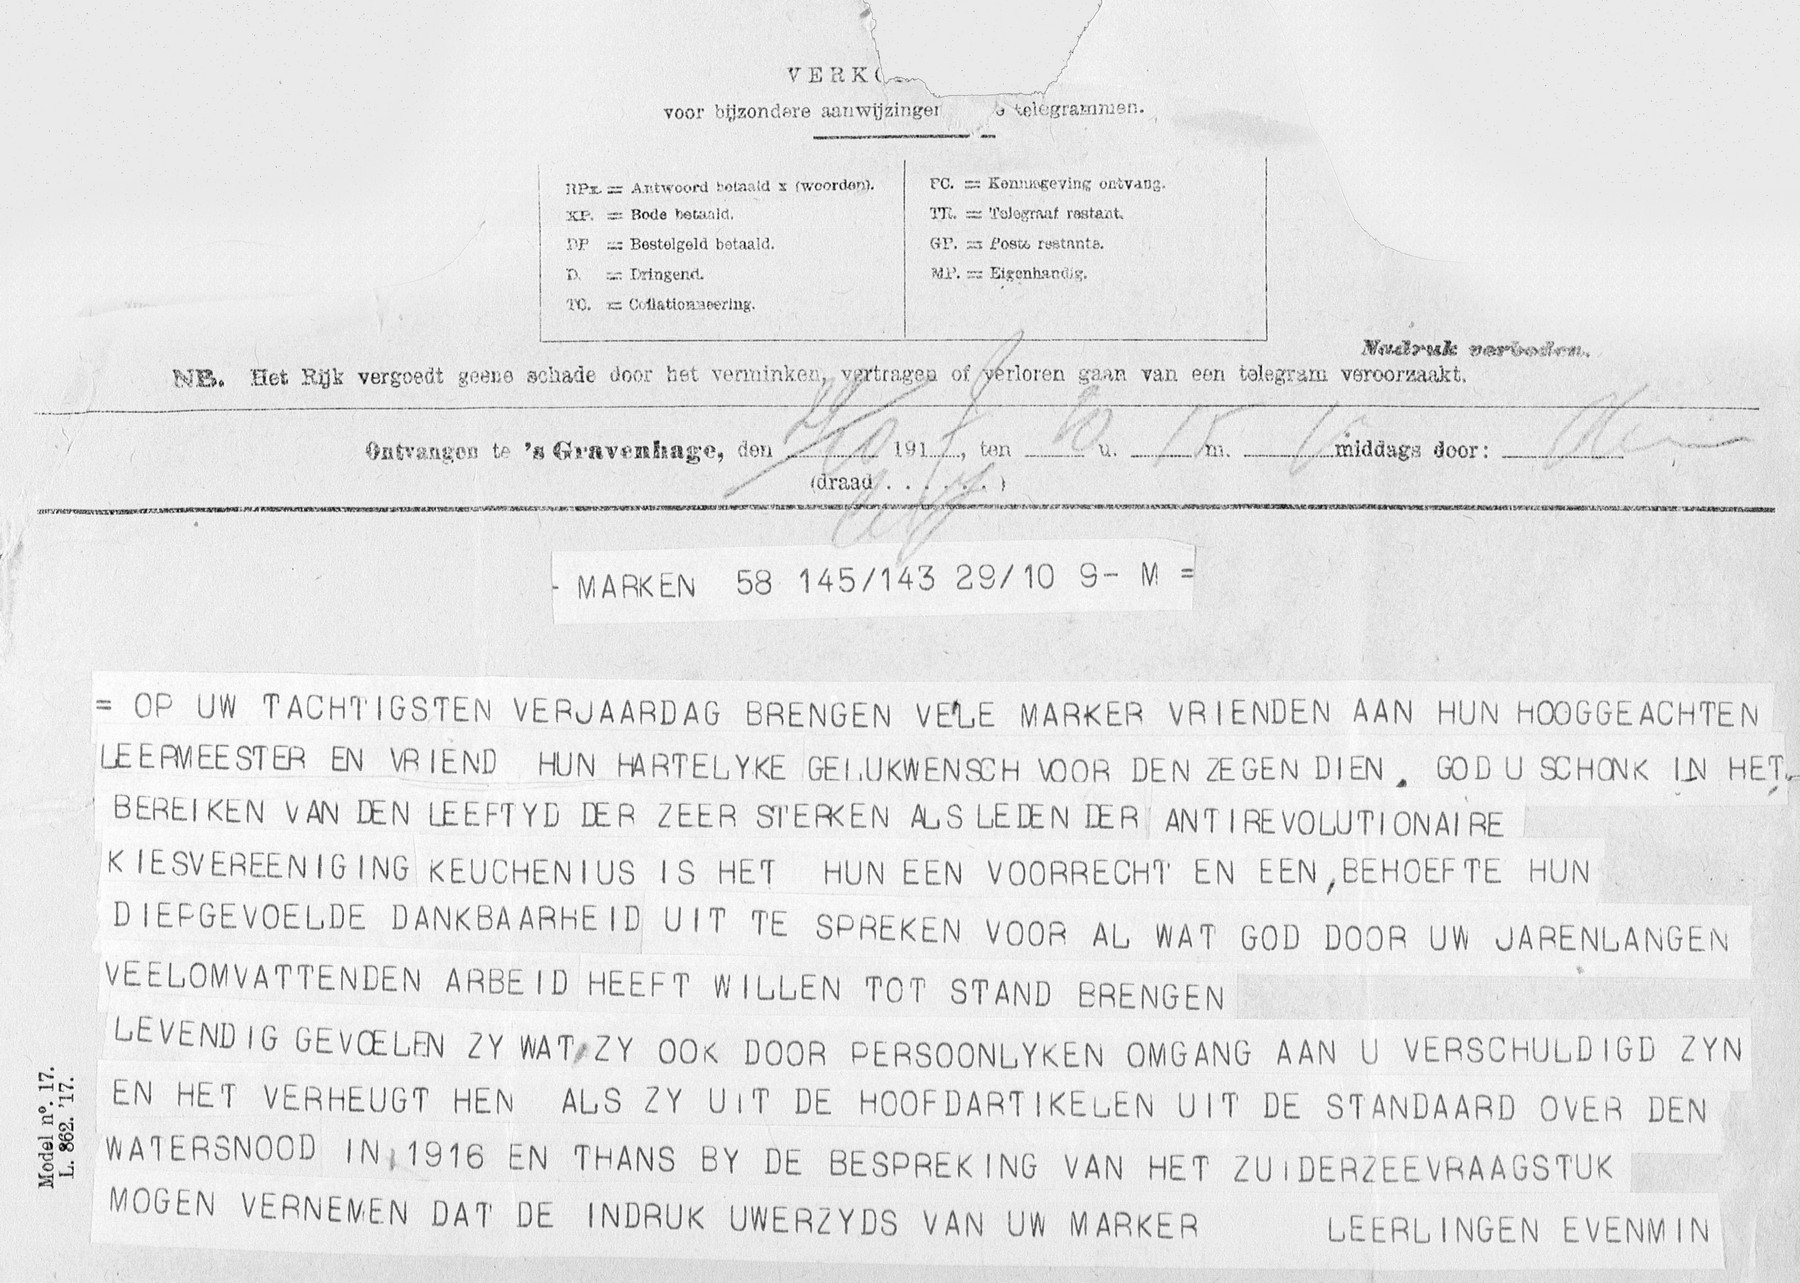 VERKO
voor bijzondere aanwijzingen telegrammen.
RPx. = Antwoord betaald x (woorden).
XP. = Bode betaald.
DP = Bestelgeld betaald.
D. = Dringend.
TC. = Collationneering.
PC. = Kennisgeving ontvang.
TR. = Telegraaf restant.
GP. = Poste restante.
MP. = Eigenhandig.
Nadruk verboden.
NB. Het Rijk vergoedt geene schade door het verminken, vertragen of verloren gaan van een telegram veroorzaakt.
Ontvangen te 's Gravenhage, den 191 , ten u. m. middags door:
(draad . . . . . . )
- MARKEN 58 145/143 29/10 9- M =
= OP UW TACHTIGSTEN VERJAARDAG BRENGEN VELE MARKER VRIENDEN AAN HUN HOOGGEACHTEN
LEERMEESTER EN VRIEND HUN HARTELYKE GELUKWENSCH VOOR DEN ZEGEN DIEN . GOD U SCHONK IN HET
BEREIKEN VAN DEN LEEFTYD DER ZEER STERKEN ALS LEDEN DER ANTIREVOLUTIONAIRE
KIESVEREENIGING KEUCHENIUS IS HET HUN EEN VOORRECHT EN EEN BEHOEFTE HUN
DIEPGEVOELDE DANKBAARHEID UIT TE SPREKEN VOOR AL WAT GOD DOOR UW JARENLANGEN
VEELOMVATTENDEN ARBEID HEEFT WILLEN TOT STAND BRENGEN
LEVENDIG GEVOELEN ZY WAT ZY OOK DOOR PERSOONLYKEN OMGANG AAN U VERSCHULDIGD ZYN
EN HET VERHEUGT HEN ALS ZY UIT DE HOOFDARTIKELEN UIT DE STANDAARD OVER DEN
WATERSNOOD IN 1916 EN THANS BY DE BESPREKING VAN HET ZUIDERZEEVRAAGSTUK
MOGEN VERNEMEN DAT DE INDRUK UWERZYDS VAN UW MARKER LEERLINGEN EVENMIN
Model nº. 17.
L. 862. '17.